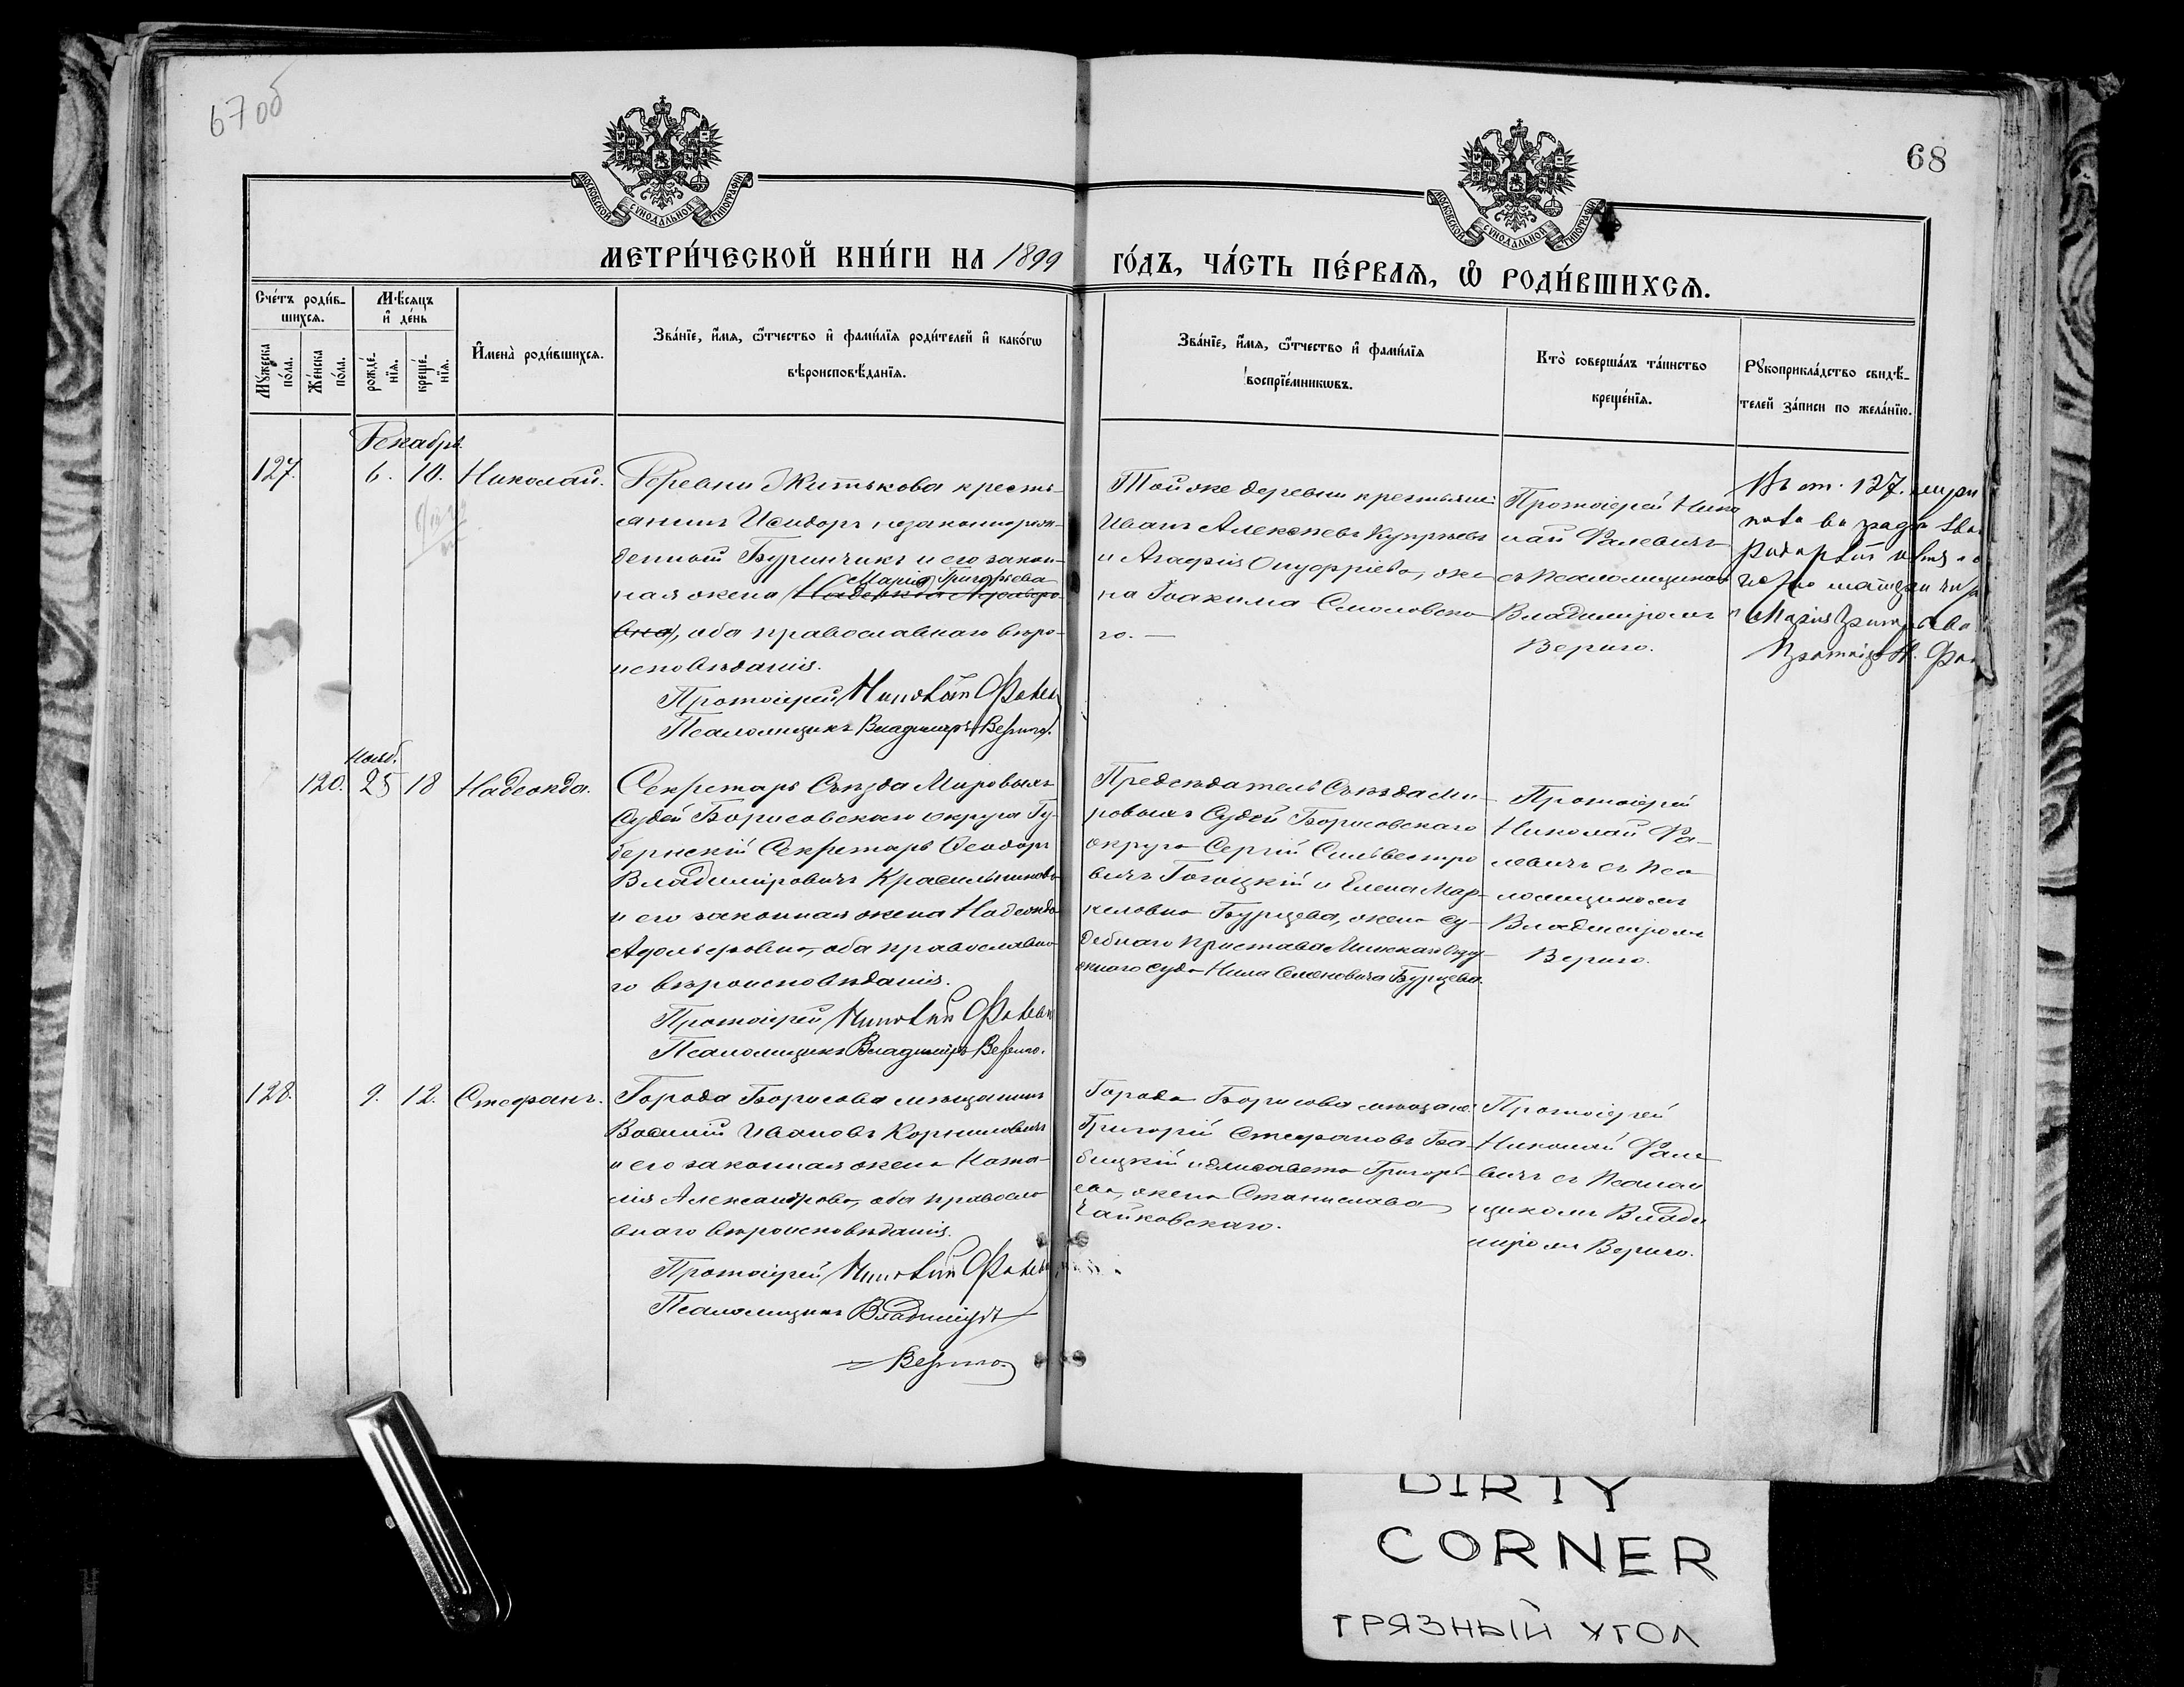 67 об
68
МОСКОВСКОЙ СѴНОДАЛЬНОЙ ТИПОГРАФІИ
МОСКОВСКОЙ СѴНОДАЛЬНОЙ ТИПОГРАФІИ
МЕТРИ́ЧЕСКОЙ КНИ́ГИ НА 1899 ГО́ДЪ, ЧА́СТЬ ПЕ́РВАѦ, Ѡ҆ РОДИ́ВШИХСѦ.
Сче́тъ роди́в-
шихсѧ.
Мꙋ́жеска
по́ла.
Же́нска
по́ла.
Мѣ́сѧцъ
и҆ де́нь
рожде́-
нїѧ.
креще́-
нїѧ.
И҆мена̀ роди́вшихсѧ.
Зва́нїе, и҆́мѧ, ѻ҆́тчество и҆ фами́лїѧ роди́телей и҆ како́гѡ
вѣроисповѣ́данїѧ.
Зва́нїе, и҆́мѧ, ѻ҆́тчество и҆ фами́лїѧ
воспрїе́мникѡвъ.
Кто̀ соверша́лъ та́инство
креще́нїѧ.
Рꙋкоприкла́дство свидѣ́-
телей за́писи по жела́нїю.
Декабрь.
127. 6. 10. Николай.
Деревни Житькова кресть-
янинъ Исидоръ незаконнорож-
денный Буринчикъ и его закон-
Марія Григорьева
ная жена
вна), оба православнаго вѣро-
исповѣданія.
Протоіерей Николай Фалевичъ
Псаломщикъ Владиміръ Верига.
Той же деревни крестьяне:
Иванъ Алексѣевъ Купрѣевъ
и Агафія Онуфріева, же-
на Іоакима Смоловска-
го. —
Протоіерей Нико
лай Фалевичъ
съ псаломщикомъ
Владиміромъ
Верига.
Въ ст. 127.
Марія Григорьева
Протоіер. Н. Фал
Нояб.
120. 25 18 Надежда.
Секретарь Съѣзда Мировыхъ
Судей Борисовскаго округа Гу-
бернскій Секретарь Ѳеодоръ
Владиміровичъ Красильниковъ
и его законная жена Надежда
Адольфовна, оба православна-
го вѣроисповѣданія.
Протоіерей Николай Фалевичъ
Псаломщикъ Владиміръ Верига.
Предсѣдатель Съѣзда Ми-
ровыхъ Судей Борисовскаго
округа Сергій Сильвестро
вичъ Гогоцкій и Елена Мар-
келовна Бурцева, жена су-
дебнаго пристава Минскаго Окру-
жнаго суда Нила Семеновича Бурцева.
Протоіерей
Николай Фа-
левичъ съ Пса
ломщикомъ
Владиміромъ
Верига.
128. 9. 12. Стефанъ.
Города Борисова мѣщанинъ
Василій Ивановъ Корниловичъ
и его законная жена Ната-
лія Александрова, оба правосла
внаго вѣроисповѣданія.
Протоіерей Николай Фалевичъ
Псаломщикъ Владиміръ
Верига.
Города Борисова мѣщане:
Григорій Стефановъ Ба-
бицкій и Елисавета Григорь-
ева, жена Станислава
Чайковскаго.
Протоіерей
Николай Фале
вичъ съ Псалом
щикомъ Влади
міромъ Верига.
DIRTY
CORNER
ГРЯЗНЫЙ УГОЛ